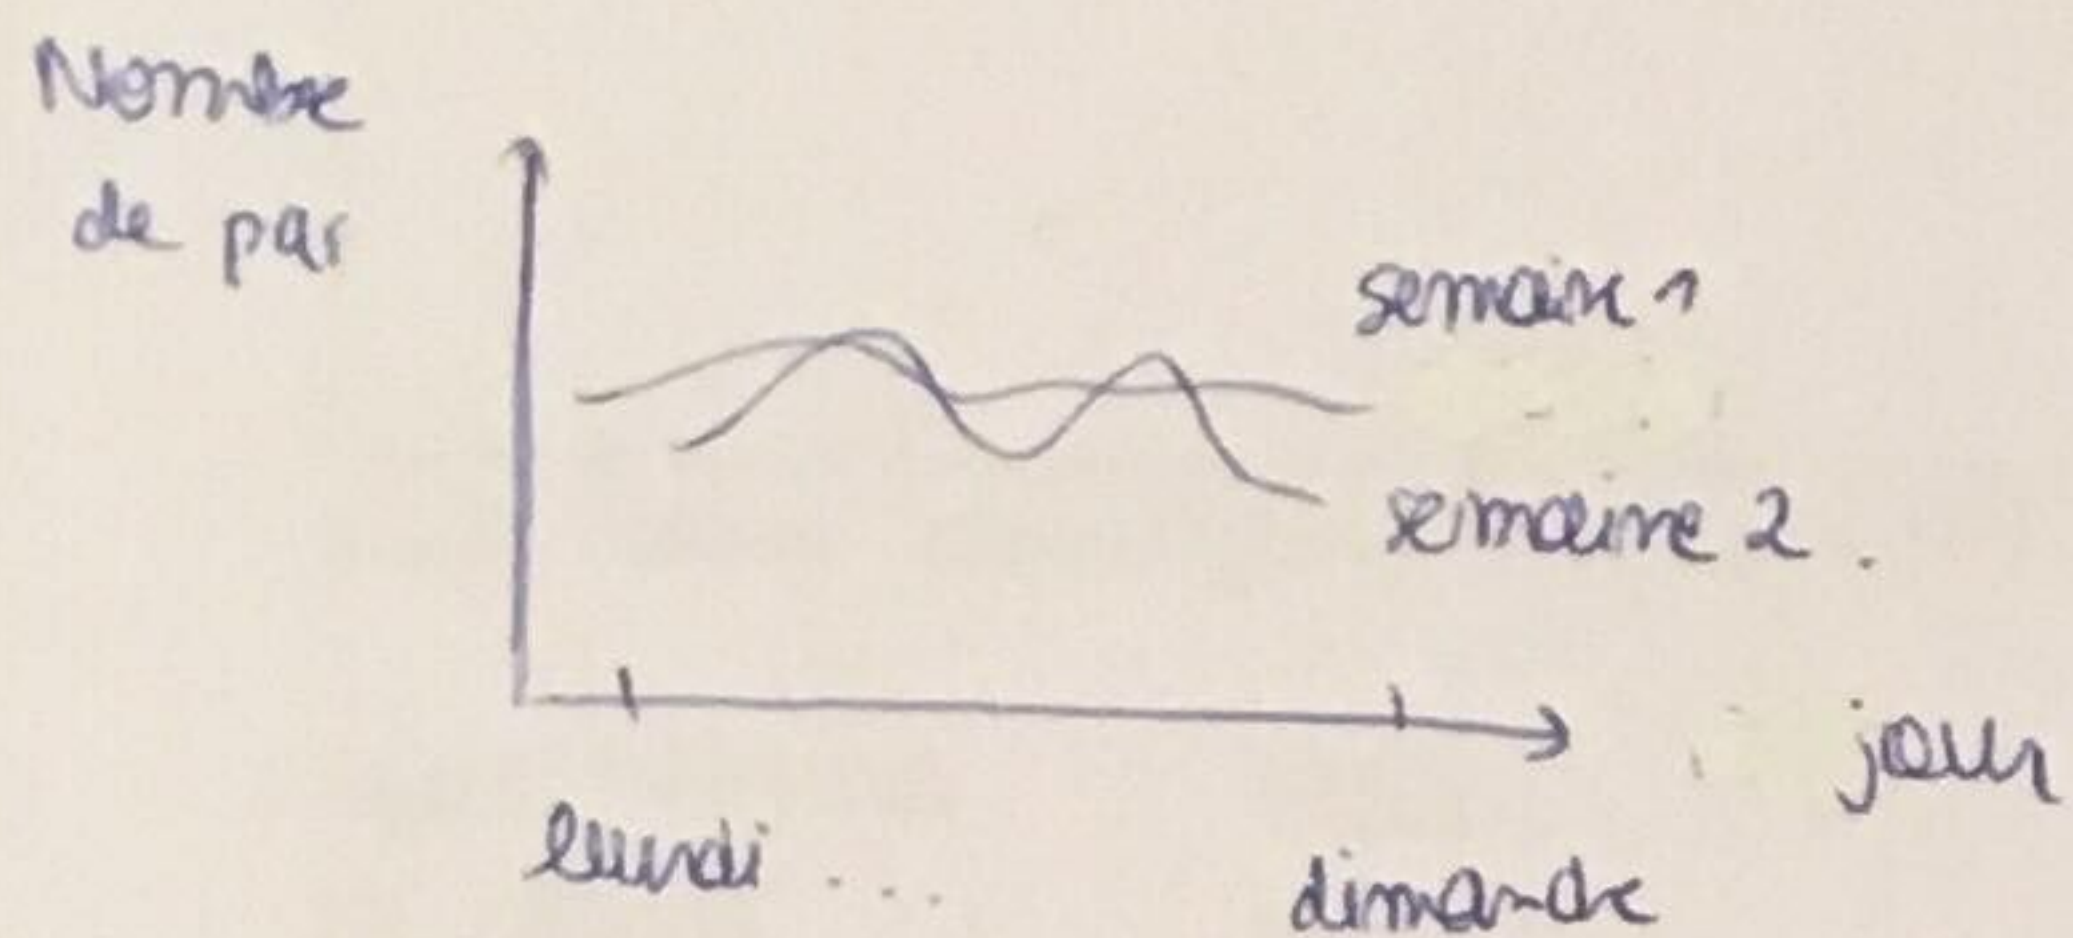 Nombre
de pas
semaine 1
semaine 2.
jour
lundi ...
dimanche